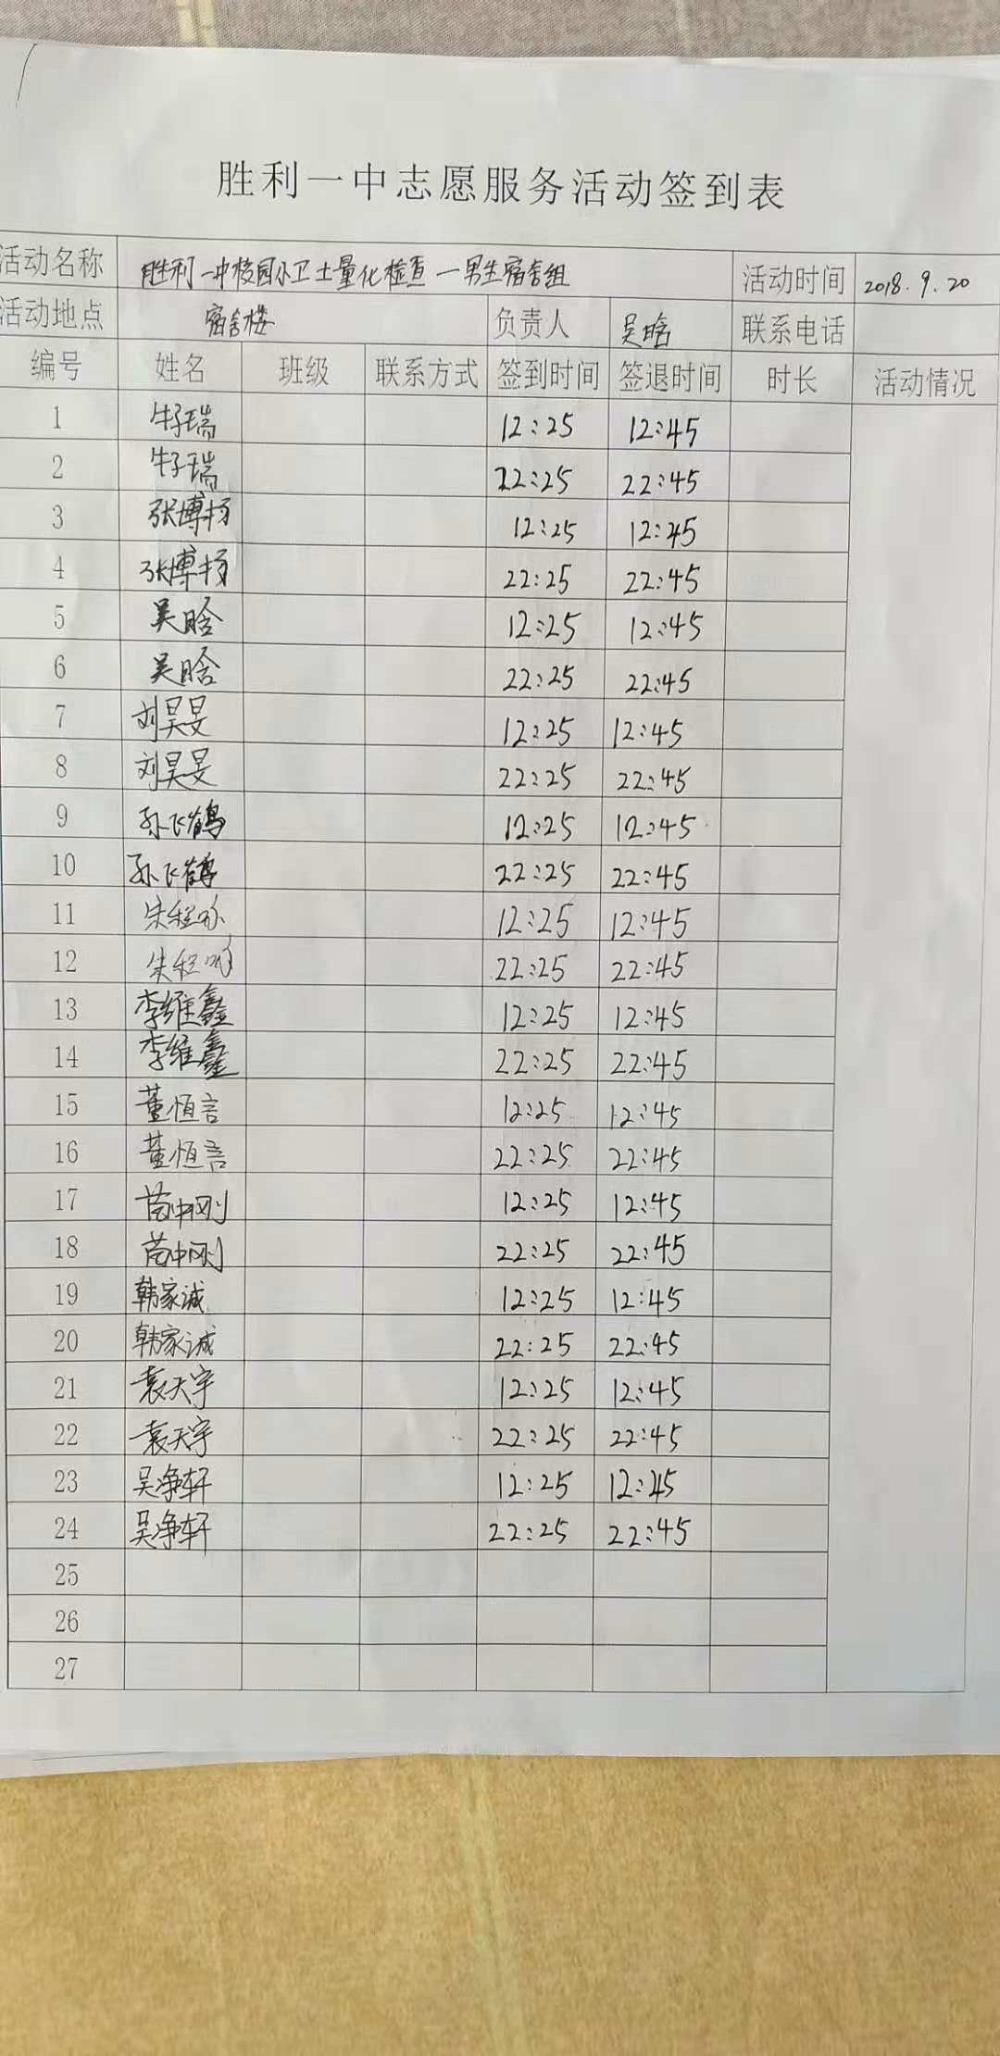 胜利一中志愿服务活动签到表
活动名称 胜利一中校园小卫士量化检查—男生宿舍组 活动时间 2018.9.20
活动地点 宿舍楼 负责人 吴晗 联系电话
编号 姓名 班级 联系方式 签到时间 签退时间 时长 活动情况
1 牛子瑞 12:25 12:45
2 牛子瑞 22:25 22:45
3 张博扬 12:25 12:45
4 张博扬 22:25 22:45
5 吴晗 12:25 12:45
6 吴晗 22:25 22:45
7 刘昊旻 12:25 12:45
8 刘昊旻 22:25 22:45
9 孙飞鹤 12:25 12:45
10 孙飞鹤 22:25 22:45
11 12:25 12:45
12 22:25 22:45
13 李维鑫 12:25 12:45
14 李维鑫 22:25 22:45
15 董恒言 12:25 12:45
16 董恒言 22:25 22:45
17 苗中刚 12:25 12:45
18 苗中刚 22:25 22:45
19 韩家诚 12:25 12:45
20 韩家诚 22:25 22:45
21 袁天宇 12:25 12:45
22 袁天宇 22:25 22:45
23 吴净轩 12:25 12:45
24 吴净轩 22:25 22:45
25
26
27